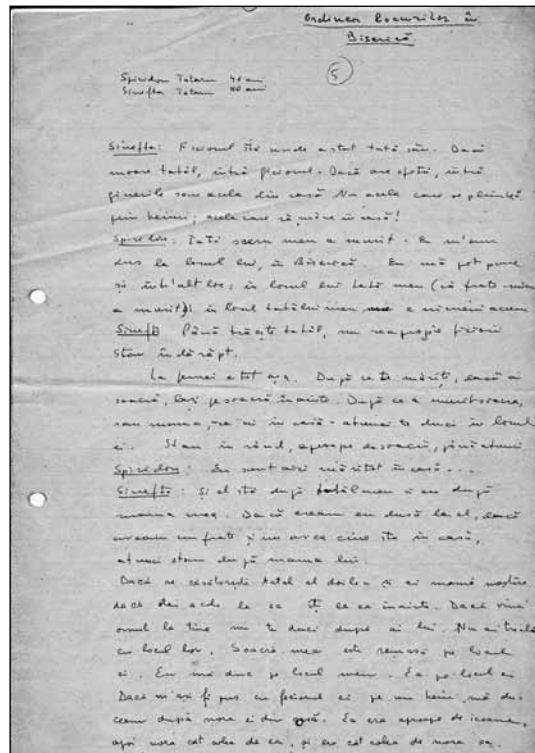 Ordinea locurilor în
Biserică
5
Spiridon Totaru 42 ani
Sinefta Totaru 40 ani
Sinefta: Ficiorul stă unde a stat tată său. Dacă
moare tatăl, intră ficiorul. Dacă are fată, intră
ginerile sau acela din casă. Nu acela care se plimbă
prin heiuri; acela care rămâne în casă!
Spiridon: Tată socru meu a murit. Eu m'am
dus la locul lui, în Biserică. Eu mă pot pune
și înt'alt loc; în locul lui tată meu (că frate-mieu
a murit) și în locul tatălui meu nu e nimeni acum
Sinefta Până trăește tatăl, nu se apropie ficiorii
stau îndărăpt.
La femei e tot așa. După ce te măriți, dacă ai
soacră, lași pe soacră înainte. După ce a murit soacra,
sau mama, că ai în casă - atunci te duci în locul
ei. Stau în rând, aproape de soacră, până atunci
Spiridon: Eu sunt aici măritat în casă...
Sinefta: Și el stă după tatăl meu și eu după
mama mea. Dacă eram eu dusă la el, dacă
aveam un frate și nu avea cine sta în casă,
atunci stam după mama lui.
Dacă se căsătorește tatăl al doilea și ai mamă maștere
dacă stai acolo la ea îți e ea înainte. Dacă vine
omul la tine nu te duci după ai lui. N'ai treabă
cu locul lor. Soacră-mea este rămasă pe locul
ei. Eu mă duc pe locul meu. Ea pe locul ei
Dacă m'aș fi pus cu ficiorul ei pe un heiu, mă du-
ceam după nora ei din casă. Ea era aproape de icoane,
apoi nora cât colea de ea, și eu cât colea de nora ea.